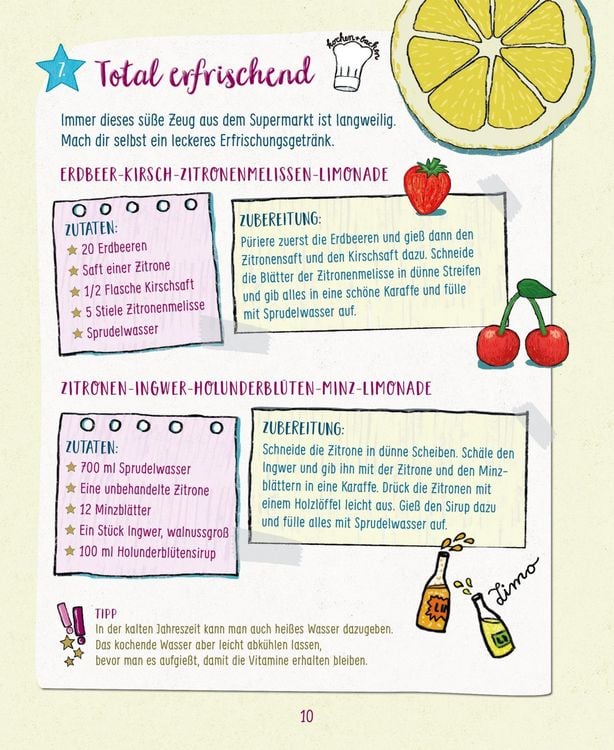 7.
Total erfrischend
kochen+backen
Immer dieses süße Zeug aus dem Supermarkt ist langweilig.
Mach dir selbst ein leckeres Erfrischungsgetränk.
ERDBEER-KIRSCH-ZITRONENMELISSEN-LIMONADE
ZUTATEN:
20 Erdbeeren
Saft einer Zitrone
1/2 Flasche Kirschsaft
5 Stiele Zitronenmelisse
Sprudelwasser
ZUBEREITUNG:
Püriere zuerst die Erdbeeren und gieß dann den
Zitronensaft und den Kirschsaft dazu. Schneide
die Blätter der Zitronenmelisse in dünne Streifen
und gib alles in eine schöne Karaffe und fülle
mit Sprudelwasser auf.
ZITRONEN-INGWER-HOLUNDERBLÜTEN-MINZ-LIMONADE
ZUTATEN:
700 ml Sprudelwasser
Eine unbehandelte Zitrone
12 Minzblätter
Ein Stück Ingwer, walnussgroß
100 ml Holunderblütensirup
ZUBEREITUNG:
Schneide die Zitrone in dünne Scheiben. Schäle den
Ingwer und gib ihn mit der Zitrone und den Minz-
blättern in eine Karaffe. Drück die Zitronen mit
einem Holzlöffel leicht aus. Gieß den Sirup dazu
und fülle alles mit Sprudelwasser auf.
Limo
LIM
LI
TIPP
In der kalten Jahreszeit kann man auch heißes Wasser dazugeben.
Das kochende Wasser aber leicht abkühlen lassen,
bevor man es aufgießt, damit die Vitamine erhalten bleiben.
10